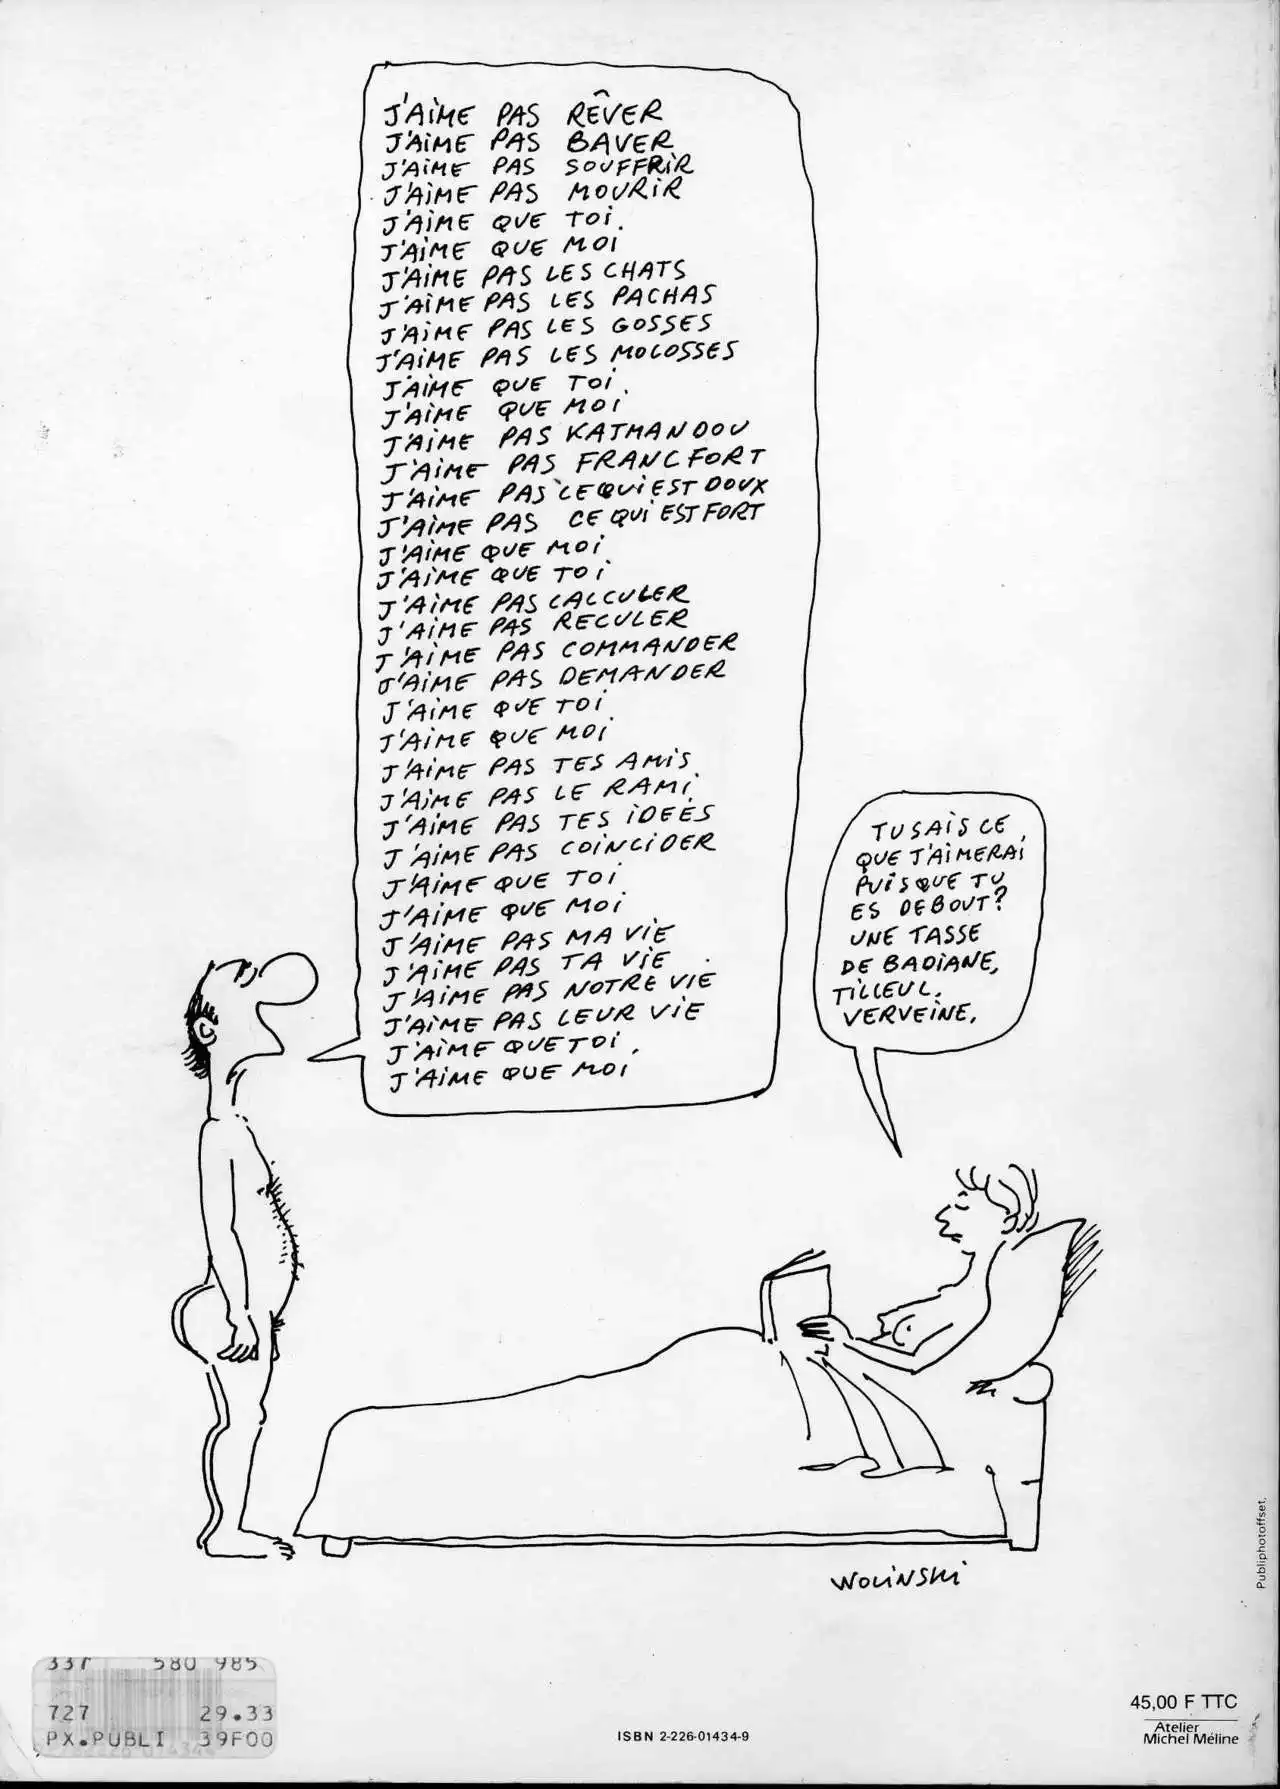 J'AIME PAS RÊVER
J'AIME PAS BAVER
J'AIME PAS SOUFFRIR
J'AIME PAS MOURIR
J'AIME QUE TOI.
J'AIME QUE MOI
J'AIME PAS LES CHATS
J'AIME PAS LES PACHAS
J'AIME PAS LES GOSSES
J'AIME PAS LES MOLOSSES
J'AIME QUE TOI.
J'AIME QUE MOI
J'AIME PAS KATMANDOU
J'AIME PAS FRANCFORT
J'AIME PAS CE QUI EST DOUX
J'AIME PAS CE QUI EST FORT
J'AIME QUE MOI
J'AIME QUE TOI
J'AIME PAS CALCULER
J'AIME PAS RECULER
J'AIME PAS COMMANDER
J'AIME PAS DEMANDER
J'AIME QUE TOI
J'AIME QUE MOI
J'AIME PAS TES AMIS
J'AIME PAS LE RAMI
J'AIME PAS TES IDEÉS
J'AIME PAS COINCIDER
J'AIME QUE TOI
J'AIME QUE MOI
J'AIME PAS MA VIE
J'AIME PAS TA VIE
J'AIME PAS NOTRE VIE
J'AIME PAS LEUR VIE
J'AIME QUE TOI.
J'AIME QUE MOI
TU SAIS CE
QUE J'AIMERAI
PUISQUE TU
ES DEBOUT?
UNE TASSE
DE BADIANE,
TILLEUL.
VERVEINE.
WOLINSKI
Publiphotoffset.
580 985
727 29.33
PX.PUBLI 39F00
ISBN 2-226-01434-9
45,00 F TTC
Atelier
Michel Méline